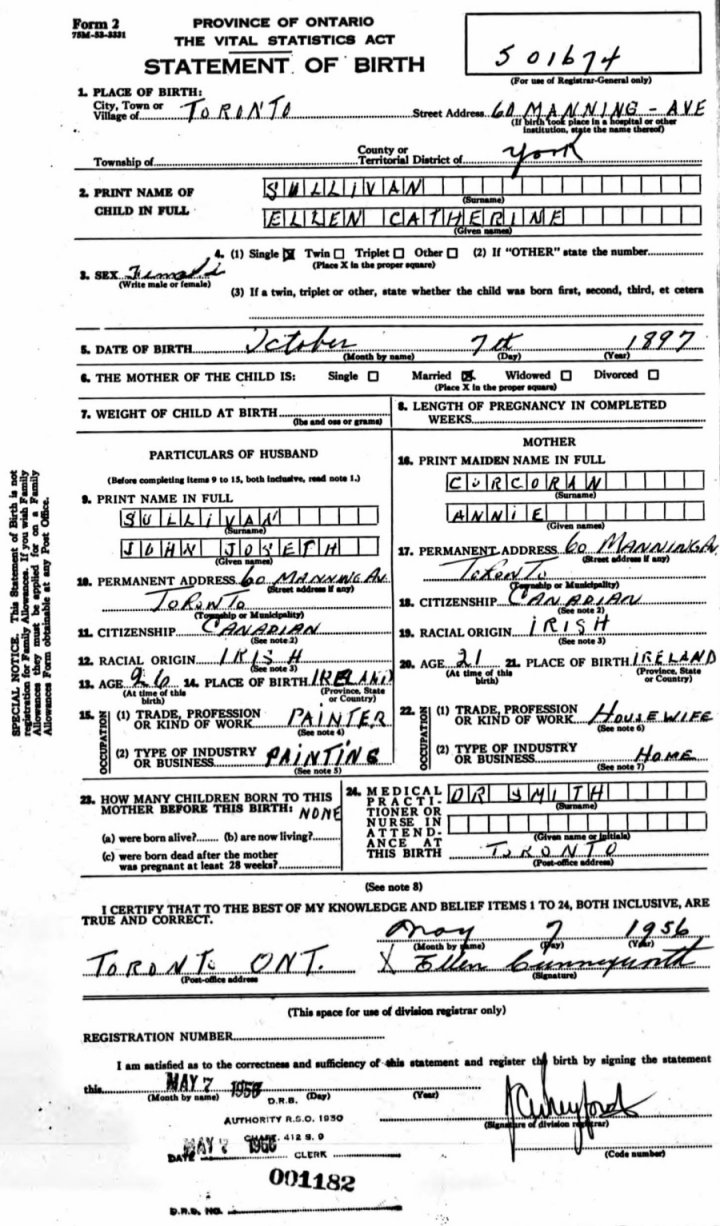 Form 2
75M-53-3331
PROVINCE OF ONTARIO
THE VITAL STATISTICS ACT
STATEMENT OF BIRTH
501674
(For use of Registrar-General only)
1. PLACE OF BIRTH:
City, Town or Village of TORONTO Street Address 60 MANNING - AVE
(If birth took place in a hospital or other institution, state the name thereof)
Township of County or Territorial District of York
2. PRINT NAME OF CHILD IN FULL
SULLIVAN
(Surname)
ELLEN CATHERINE
(Given names)
3. SEX Female
(Write male or female)
4. (1) Single X Twin Triplet Other (2) If "OTHER" state the number
(Place X in the proper square)
(3) If a twin, triplet or other, state whether the child was born first, second, third, et cetera
5. DATE OF BIRTH October 7th 1897
(Month by name) (Day) (Year)
6. THE MOTHER OF THE CHILD IS: Single Married X Widowed Divorced
(Place X in the proper square)
7. WEIGHT OF CHILD AT BIRTH
(lbs and ozs or grams)
8. LENGTH OF PREGNANCY IN COMPLETED WEEKS
PARTICULARS OF HUSBAND
(Before completing items 9 to 15, both inclusive, read note 1.)
9. PRINT NAME IN FULL
SULLIVAN
(Surname)
JOHN JOSETH
(Given names)
10. PERMANENT ADDRESS 60 MANNING AV.
(Street address if any)
TORONTO
(Township or Municipality)
11. CITIZENSHIP CANADIAN
(See note 2)
12. RACIAL ORIGIN IRISH
(See note 3)
13. AGE 26 14. PLACE OF BIRTH IRELAND
(At time of this birth) (Province, State or Country)
15. OCCUPATION
(1) TRADE, PROFESSION OR KIND OF WORK PAINTER
(See note 4)
(2) TYPE OF INDUSTRY OR BUSINESS PAINTING
(See note 5)
MOTHER
16. PRINT MAIDEN NAME IN FULL
CORCORAN
(Surname)
ANNIE
(Given names)
17. PERMANENT ADDRESS 60 MANNING AV
(Street address if any)
TORONTO
(Township or Municipality)
18. CITIZENSHIP CANADIAN
(See note 2)
19. RACIAL ORIGIN IRISH
(See note 3)
20. AGE 21 21. PLACE OF BIRTH IRELAND
(At time of this birth) (Province, State or Country)
22. OCCUPATION
(1) TRADE, PROFESSION OR KIND OF WORK HOUSEWIFE
(See note 6)
(2) TYPE OF INDUSTRY OR BUSINESS HOME
(See note 7)
23. HOW MANY CHILDREN BORN TO THIS MOTHER BEFORE THIS BIRTH: NONE
(a) were born alive? (b) are now living?
(c) were born dead after the mother was pregnant at least 28 weeks?
24. MEDICAL PRACTITIONER OR NURSE IN ATTENDANCE AT THIS BIRTH
DR SMITH
(Surname)
(Given name or initials)
TORONTO
(Post-office address)
(See note 8)
I CERTIFY THAT TO THE BEST OF MY KNOWLEDGE AND BELIEF ITEMS 1 TO 24, BOTH INCLUSIVE, ARE TRUE AND CORRECT.
May 7 1956
(Month by name) (Day) (Year)
TORONTO ONT. X Ellen
(Post-office address) (Signature)
(This space for use of division registrar only)
REGISTRATION NUMBER
I am satisfied as to the correctness and sufficiency of this statement and register the birth by signing the statement
this MAY 7 1956
(Month by name) (Day) (Year)
D.R.B.
AUTHORITY R.S.O. 1950
CHAP. 412 S. 9
DATE MAY 7 1956 CLERK
(Signature of division registrar)
(Code number)
001182
D.R.B. NO.
SPECIAL NOTICE. This Statement of Birth is not
registration for Family Allowances. If you wish Family
Allowances they must be applied for on a Family
Allowances Form obtainable at any Post Office.